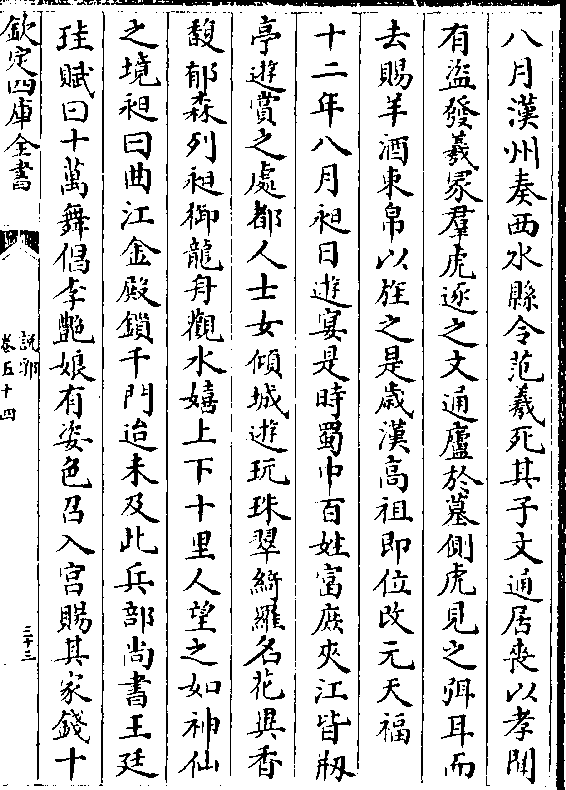 八月漢州奏西水縣令范羲死其子文通居喪以孝聞
有盜發羲冢羣虎逐之文通廬於墓側虎見之弭耳而
去賜羊酒束帛以旌之是歳漢高祖即位改元天福
十二年八月昶日遊宴是時蜀中百姓富庶夾江皆𣃁
亭遊賞之處都人士女傾城遊玩珠翠綺羅名花異香
馥郁森列昶御龍舟觀水嬉上下十里人望之如神仙
之境昶曰曲江金殿鎖千門迨未及此兵部尚書王廷
珪賦曰十萬舞倡李艶娘有姿色召入宮賜其家錢十
欽定四庫全書
說郛
卷五十四
三十三